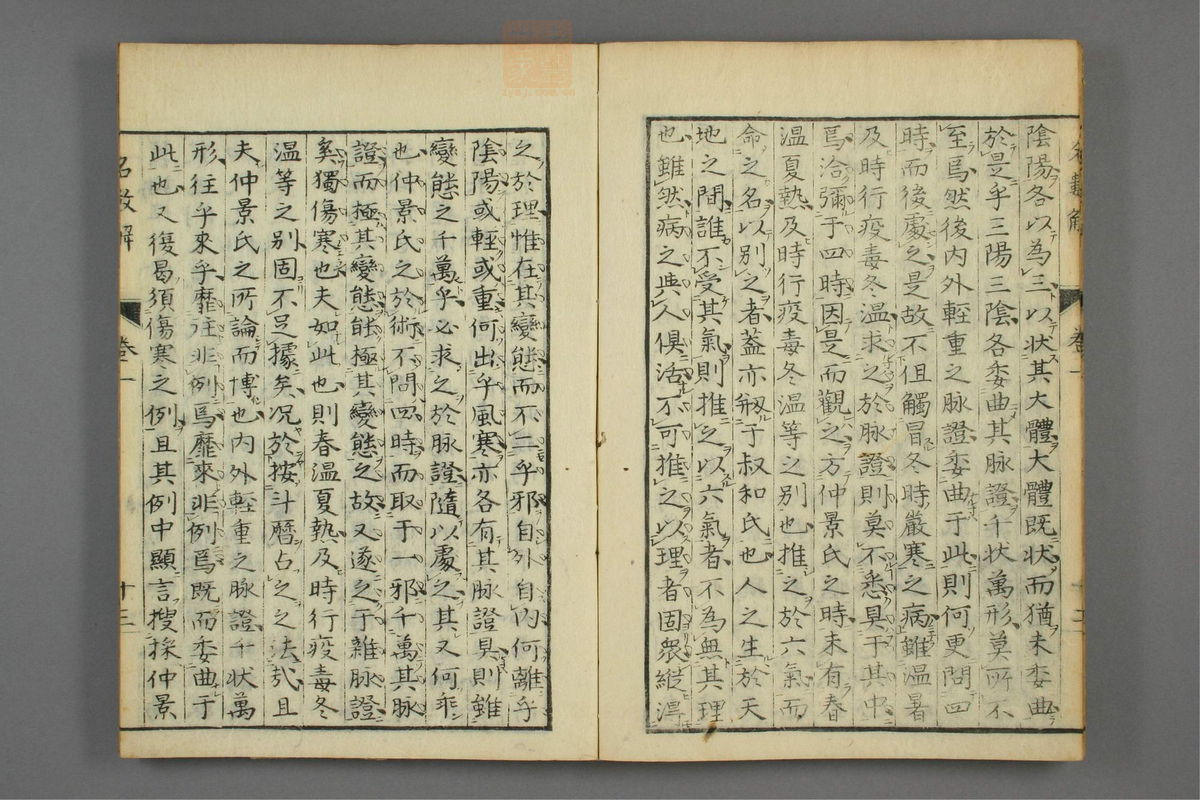 陰陽各以為三以狀其大體大體既狀而猶未委曲
於是乎三陽三陰各委曲其脉證千狀萬形莫所不
至焉然後內外輊重之脉證委曲于此則何更問四
時而後處之是故不但觸冒冬時嚴寒之病雖溫暑
及時行疫毒冬溫求之於脉證則莫不悉具于其中
焉洽彌于四時因是而觀之方仲景氏之時未有春
溫夏熱及時行疫毒冬溫等之别也推之於六氣而
命之名以别之者蓋亦剏于叔和氏也人之生於天
地之間誰不受其氣則推之以六氣者不為無其理
也雖然病之與人俱活不可推之以理者固衆縱渾
之於理惟在其變態而不二乎邪自外自內何離乎
陰陽或輊或重何出乎風寒亦各有其脉證具則雖
變態之千萬乎必求之於脉證隨以處之其又何乖
也仲景氏之於術不問四時而取于一邪千萬其脉
證而極其變態能極其變態之故又遂之于雜脉證
奚獨傷寒也夫如此也則春溫夏熱及時行疫毒冬
溫等之别固不足據矣况於按斗曆占之之法㢤且
夫仲景氏之所論而博也內外輊重之脉證千狀萬
形往乎來乎靡往非例焉靡來非例焉既而委曲于
此也又復曷須傷寒之例且其例中顯言搜採仲景
名數解 卷一 十三